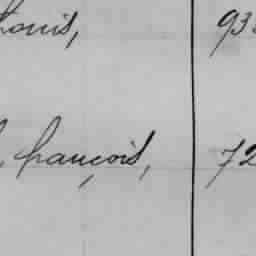 Louis, 93
françois, 72